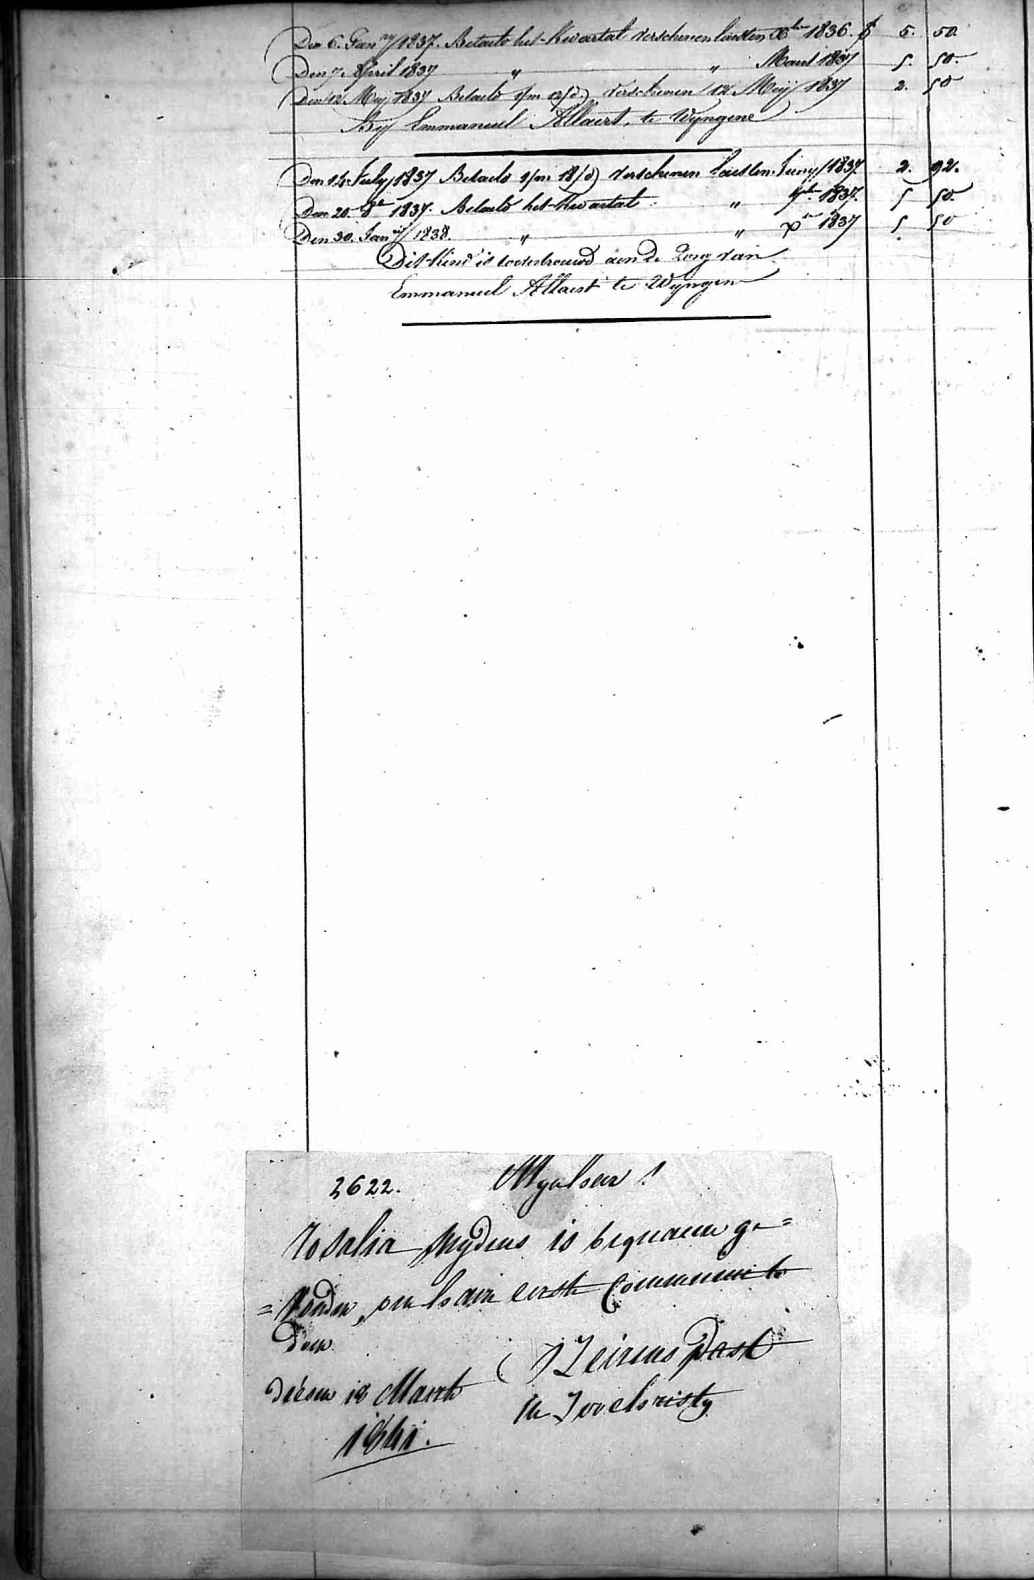 Den 6. Jan.ry 1837. Betaeld het kwartal verschenen laesten Xber 1836. f 5. 50
Den 7. April 1837 " " Maert 1837 5. 50.
Den 12 Mey 1837 Betaeld 1/m 12/d) verschenen 12 Meÿ 1837 2. 50
Bÿ Emmanuel Allaert, te Wyngene
Den 14 July 1837 Betaeld 1/m 18/d) verschenen laesten Juny 1837 2. 92.
Den 20. 8br 1837. Betaeld het kwartal " 7br 1837. 5 50.
Den 30. Jan.ry 1838. " " Xber 1837 5. 50
Dit kind is toevertrouwd aen de zorg van
Emmanuel Allaert te Wÿngene
2622.
Rosalia is bequaem ge=
=vonden, om haer eerste Communie te
doen
desen 18 Maerte
1841.
Past